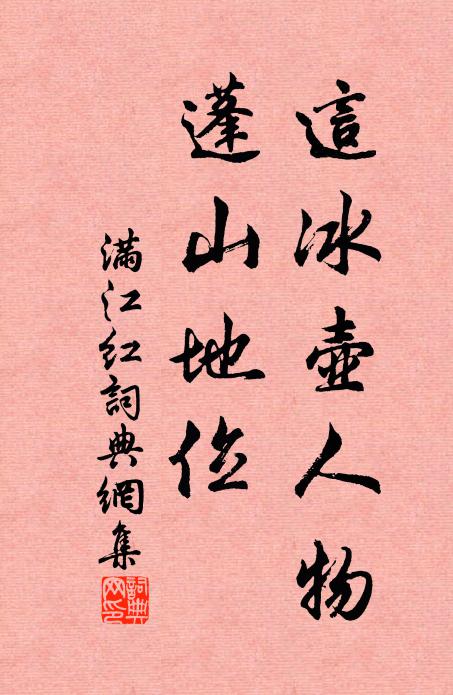 這冰壺人物
蓬山地位
滿江紅詞典網集
詞典网印